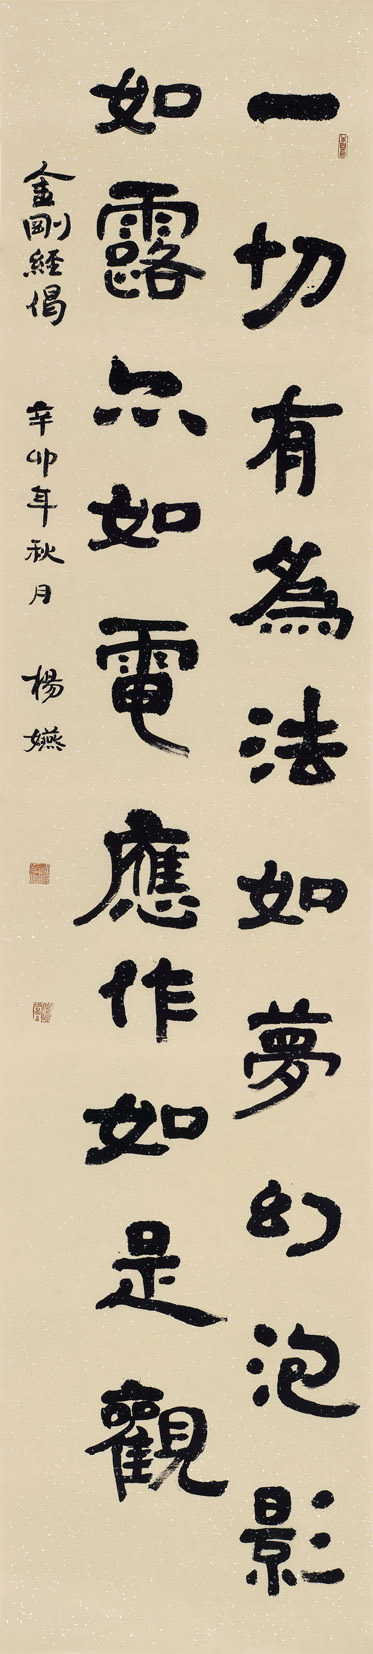 一切有為法如夢幻泡影
如露亦如電應作如是觀
金剛經偈 辛卯年秋月 楊嬿